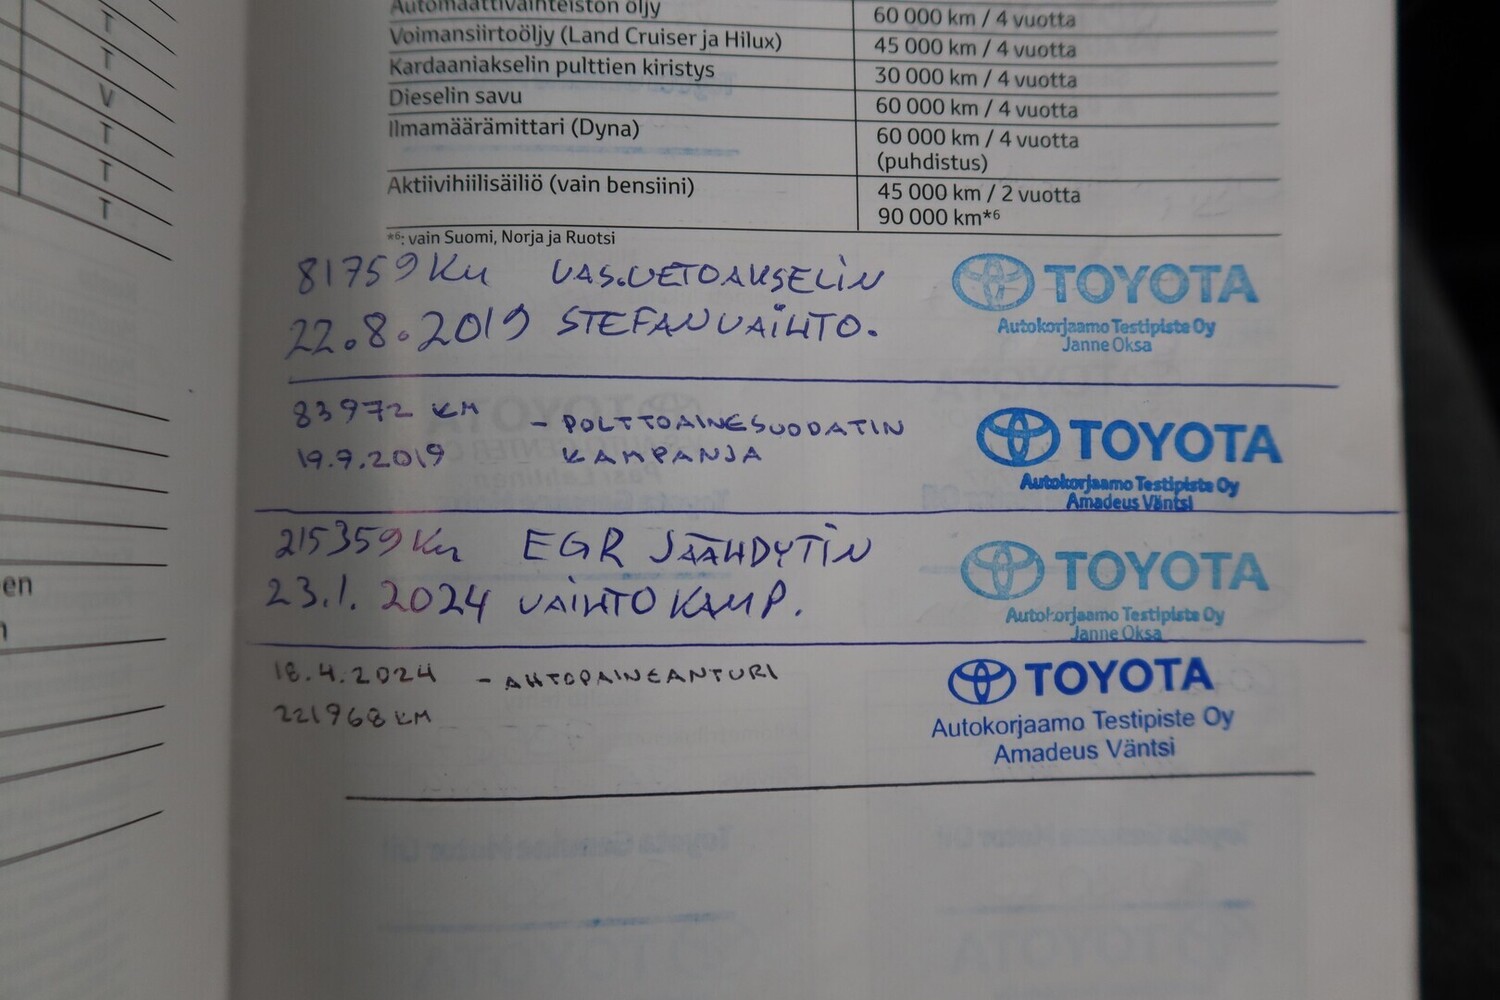 T
T
V
T
T
T
en
Automaattivaihteiston öljy 60 000 km / 4 vuotta
Voimansiirtoöljy (Land Cruiser ja Hilux) 45 000 km / 4 vuotta
Kardaaniakselin pulttien kiristys 30 000 km / 4 vuotta
Dieselin savu 60 000 km / 4 vuotta
Ilmamäärämittari (Dyna) 60 000 km / 4 vuotta
(puhdistus)
Aktiivihiilisäiliö (vain bensiini) 45 000 km / 2 vuotta
90 000 km*6
*6: vain Suomi, Norja ja Ruotsi
81759 Km VAS.VETOAKSELIN TOYOTA
22.8.2019 STEFAN VAIHTO. Autokorjaamo Testipiste Oy
Janne Oksa
83972 KM - POLTTOAINESUODATIN TOYOTA
19.9.2019 KAMPANJA Autokorjaamo Testipiste Oy
Amadeus Väntsi
215359 Km EGR JÄÄHDYTIN TOYOTA
23.1.2024 VAIHTO KAMP. Autokorjaamo Testipiste Oy
Janne Oksa
18.4.2024 - AHTOPAINEANTURI TOYOTA
221968 KM Autokorjaamo Testipiste Oy
Amadeus Väntsi